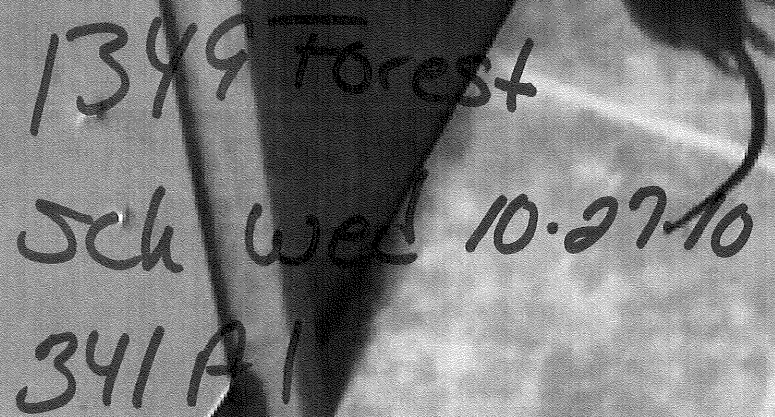 1349 Forest
Sch Wed 10.27.10
341 A 1